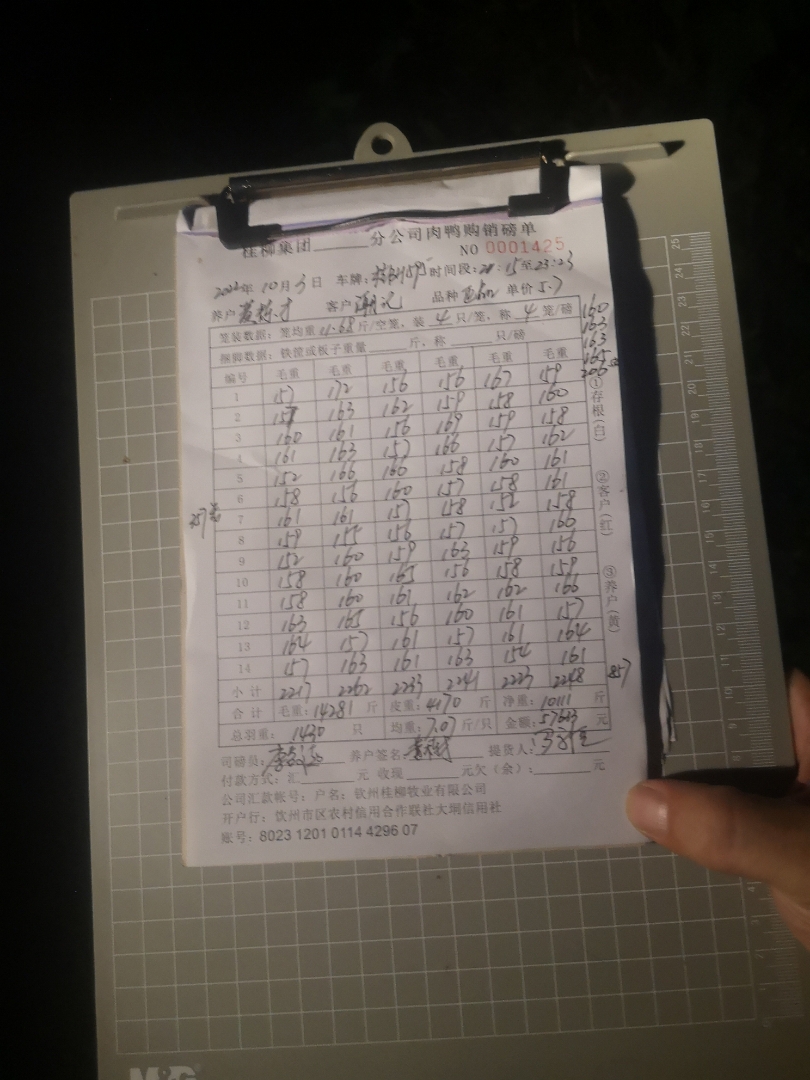 桂柳集团______分公司肉鸭购销磅单
NO 0001425
2022年10月3日 车牌: 时间段:21:15至23:23
养户 客户 潮记 品种 单价 5.7
笼装数据:笼均重11.68斤/空笼,装4只/笼,称4笼/磅
捆脚数据:铁渣或板子重量______斤,称______只/磅
160
163
163
165
206
编号 毛重 毛重 毛重 毛重 毛重 毛重
1 157 172 156 156 167 159
2 157 163 162 159 158 160
3 160 161 156 169 159 158
4 161 163 157 166 157 162
5 152 166 166 158 160 161
6 158 156 160 157 158 161
7 161 161 157 158 152 158
8 159 155 156 157 157 166
9 152 160 159 163 159 156
10 158 160 165 156 158 159
11 158 160 161 162 162 166
12 163 165 156 160 161 157
13 164 157 161 157 161 164
14 157 163 161 163 154 161
小计 2217 2262 2233 2241 2223 2248
857
合计 毛重:14281斤 皮重:4170斤 净重:10111斤
总羽重:1430只 均重:7.07斤/只 金额:57633元
①存根(白)
②客户(红)
③养户(黄)
司磅员: 养户签名: 提货人:
付款方式:汇______元 收现______元欠(余):______元
公司汇款帐号:户名:钦州桂柳牧业有限公司
开户行:钦州市区农村信用合作联社大垌信用社
账号:8023 1201 0114 4296 07
M&G